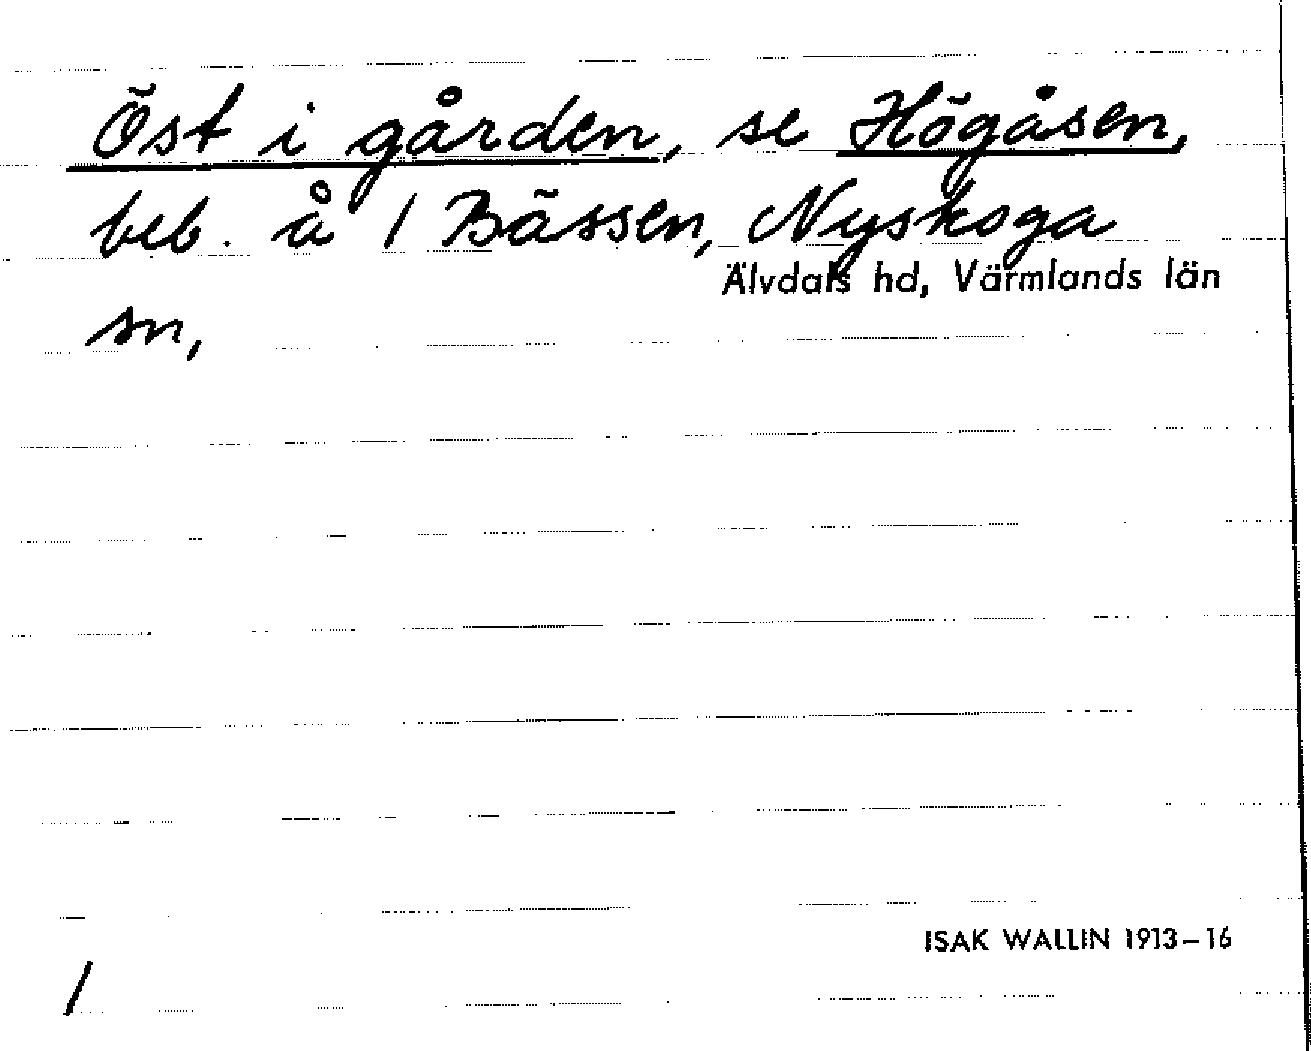 Öst i gården, se Högåsen,
beb. å 1 Bässen, Nyskoga
Älvdals hd, Värmlands län
sn,
ISAK WALLIN 1913–16
/